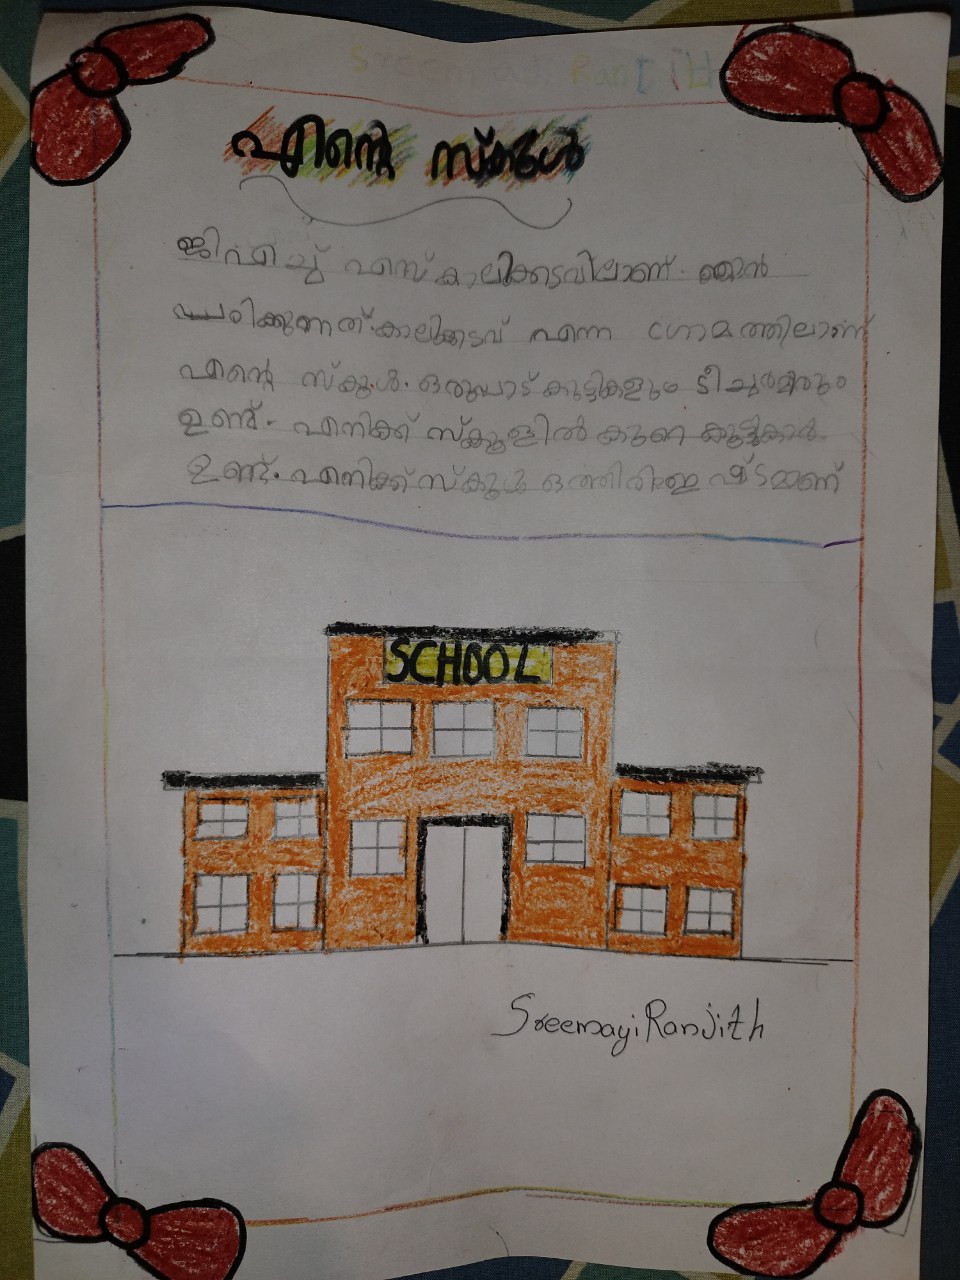 Sreemayi Ranjith
എന്റെ സ്കൂൾ
ജി എച്ച് എസ് കാലിക്കടവിലാണ്. ഞാൻ
പഠിക്കുന്നത്. കാലിക്കടവ് എന്ന ഗ്രാമത്തിലാണ്
എന്റെ സ്കൂൾ. ഒരുപാട് കുട്ടികളും ടീച്ചർമാരും
ഉണ്ട്. എനിക്ക് സ്കൂളിൽ കുറെ കൂട്ടുകാർ
ഉണ്ട്. എനിക്ക് സ്കൂൾ ഒത്തിരി ഇഷ്ടമാണ്
SCHOOL
Sreemayi Ranjith